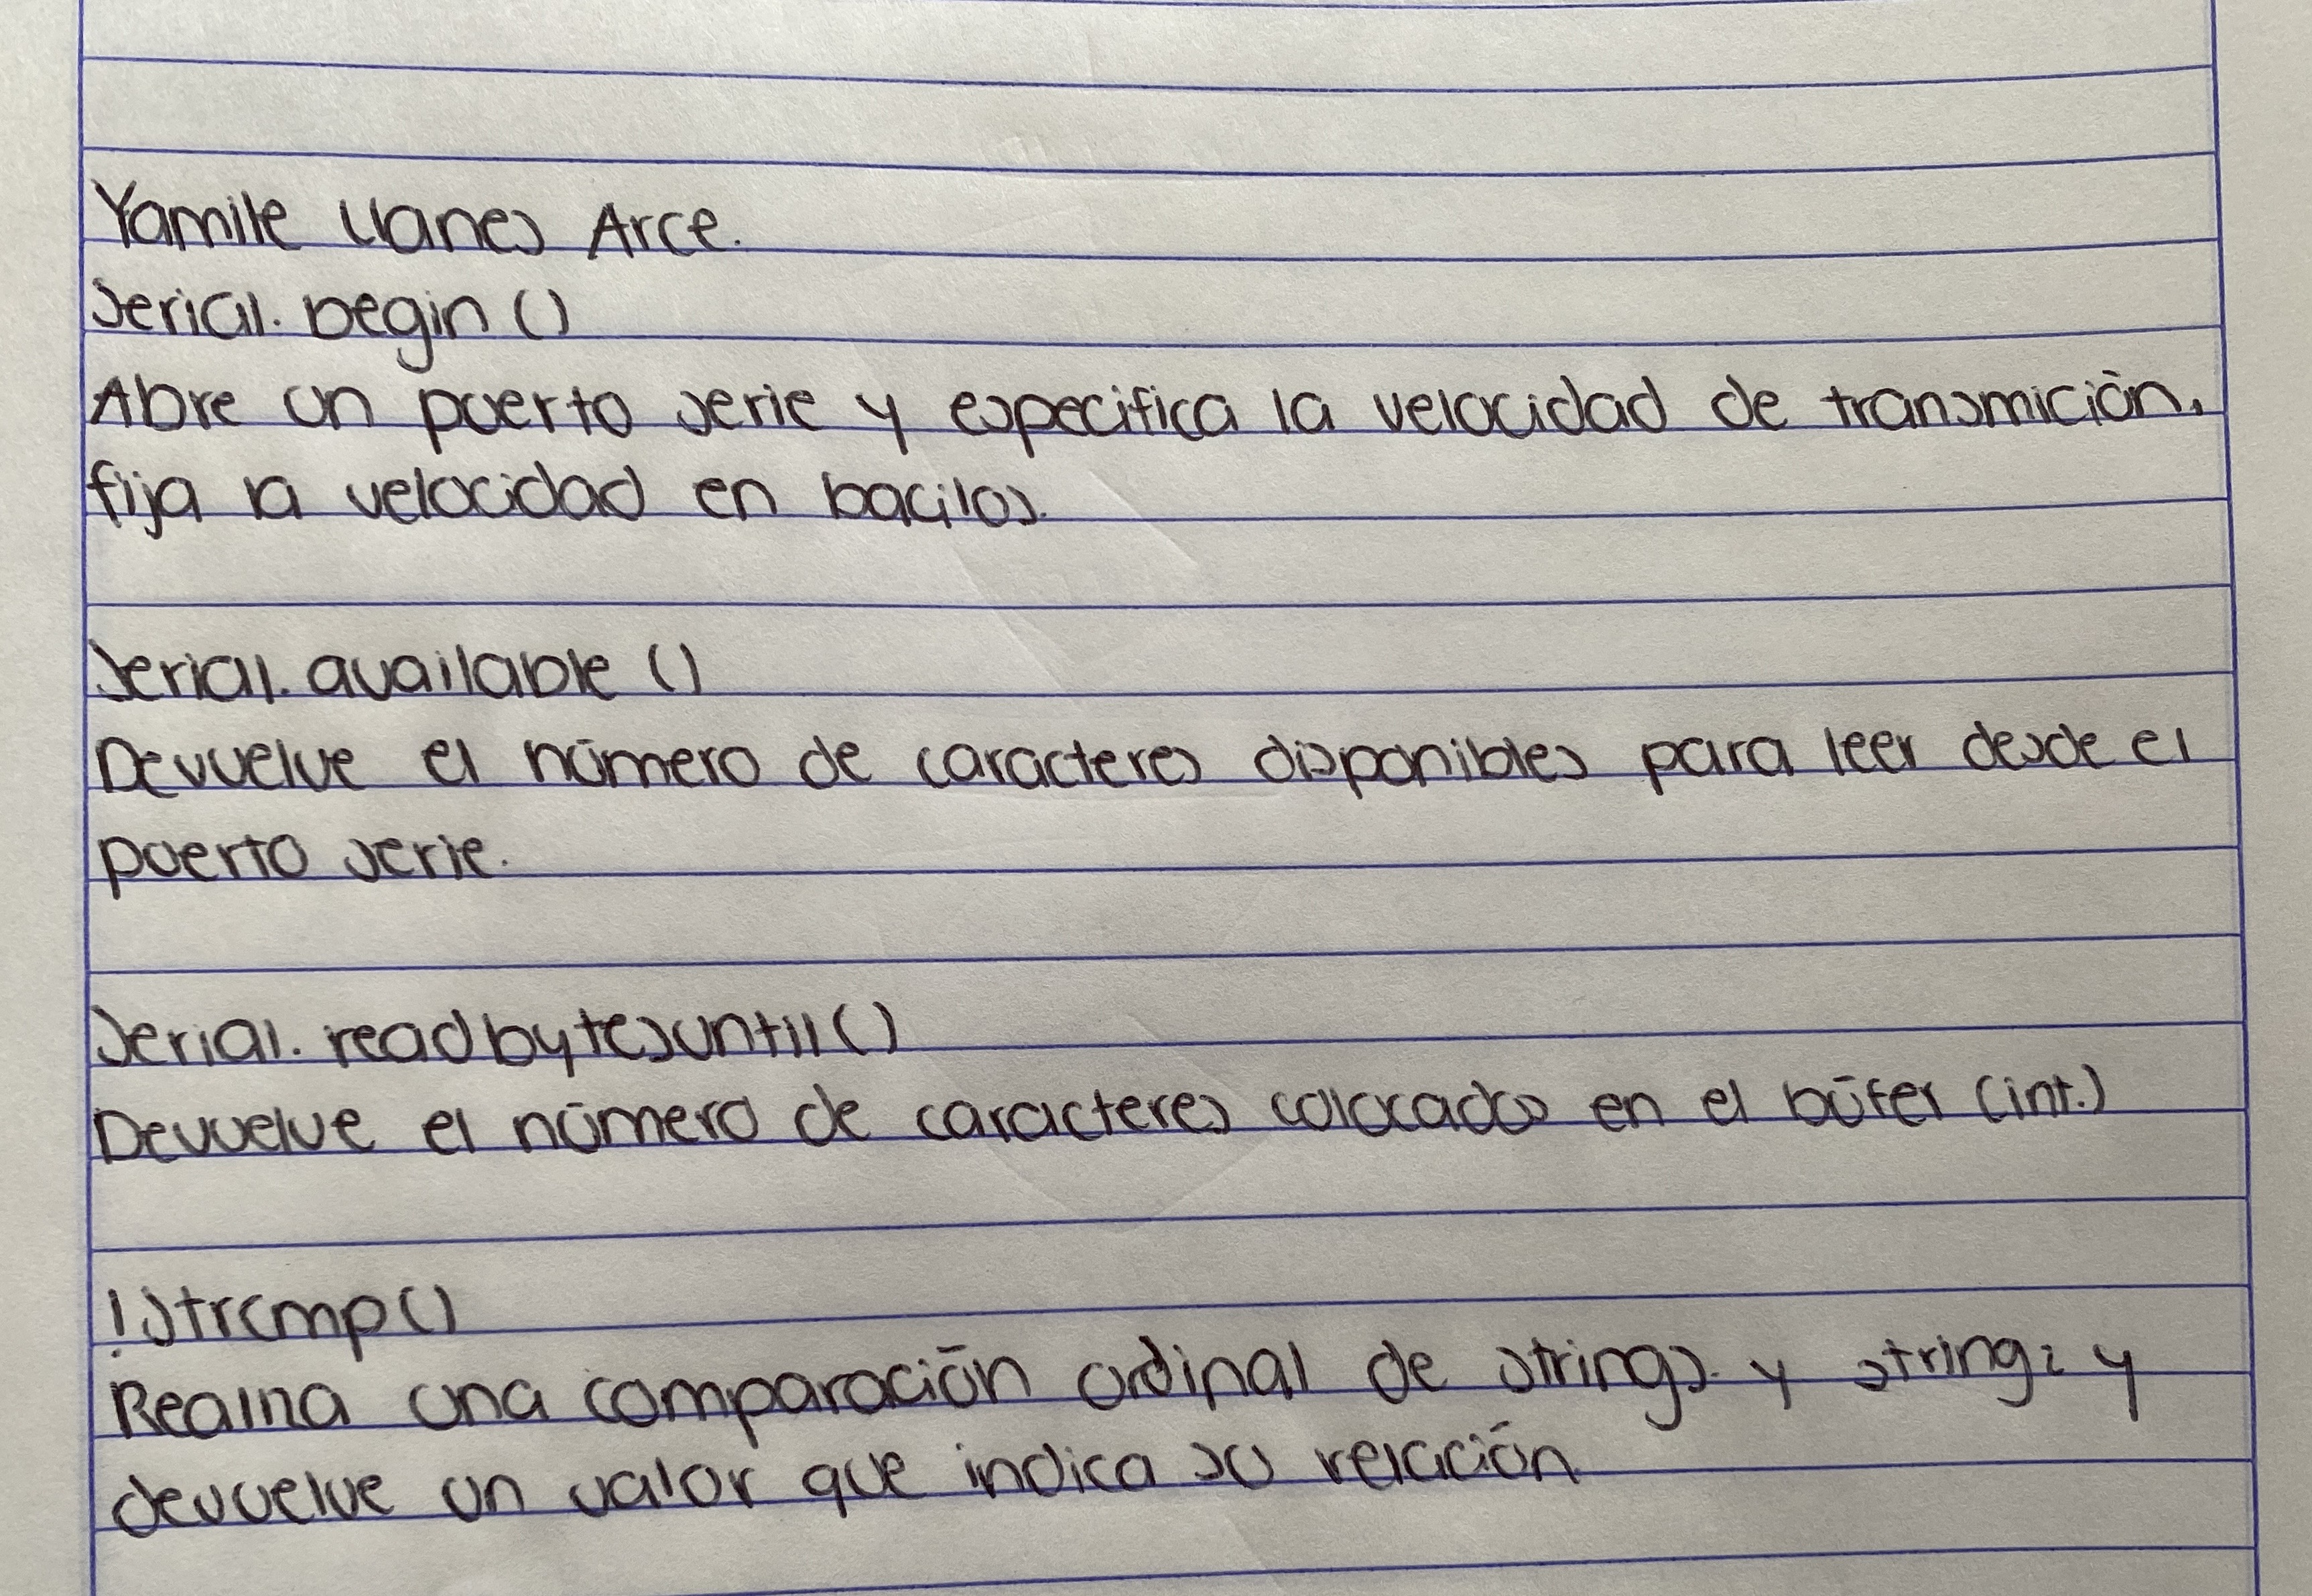 Yamile Llanes Arce.
Serial. begin ()
Abre un puerto serie y especifica la velocidad de transmición,
fija la velocidad en bacilos.
Serial. available ()
Devuelve el número de caracteres disponibles para leer desde el
puerto serie.
Serial. readbytesuntil ()
Devuelve el número de caracteres colocados en el búfer (int.)
!strcmp()
Realiza una comparación ordinal de string y string2 y
devuelve un valor que indica su relación